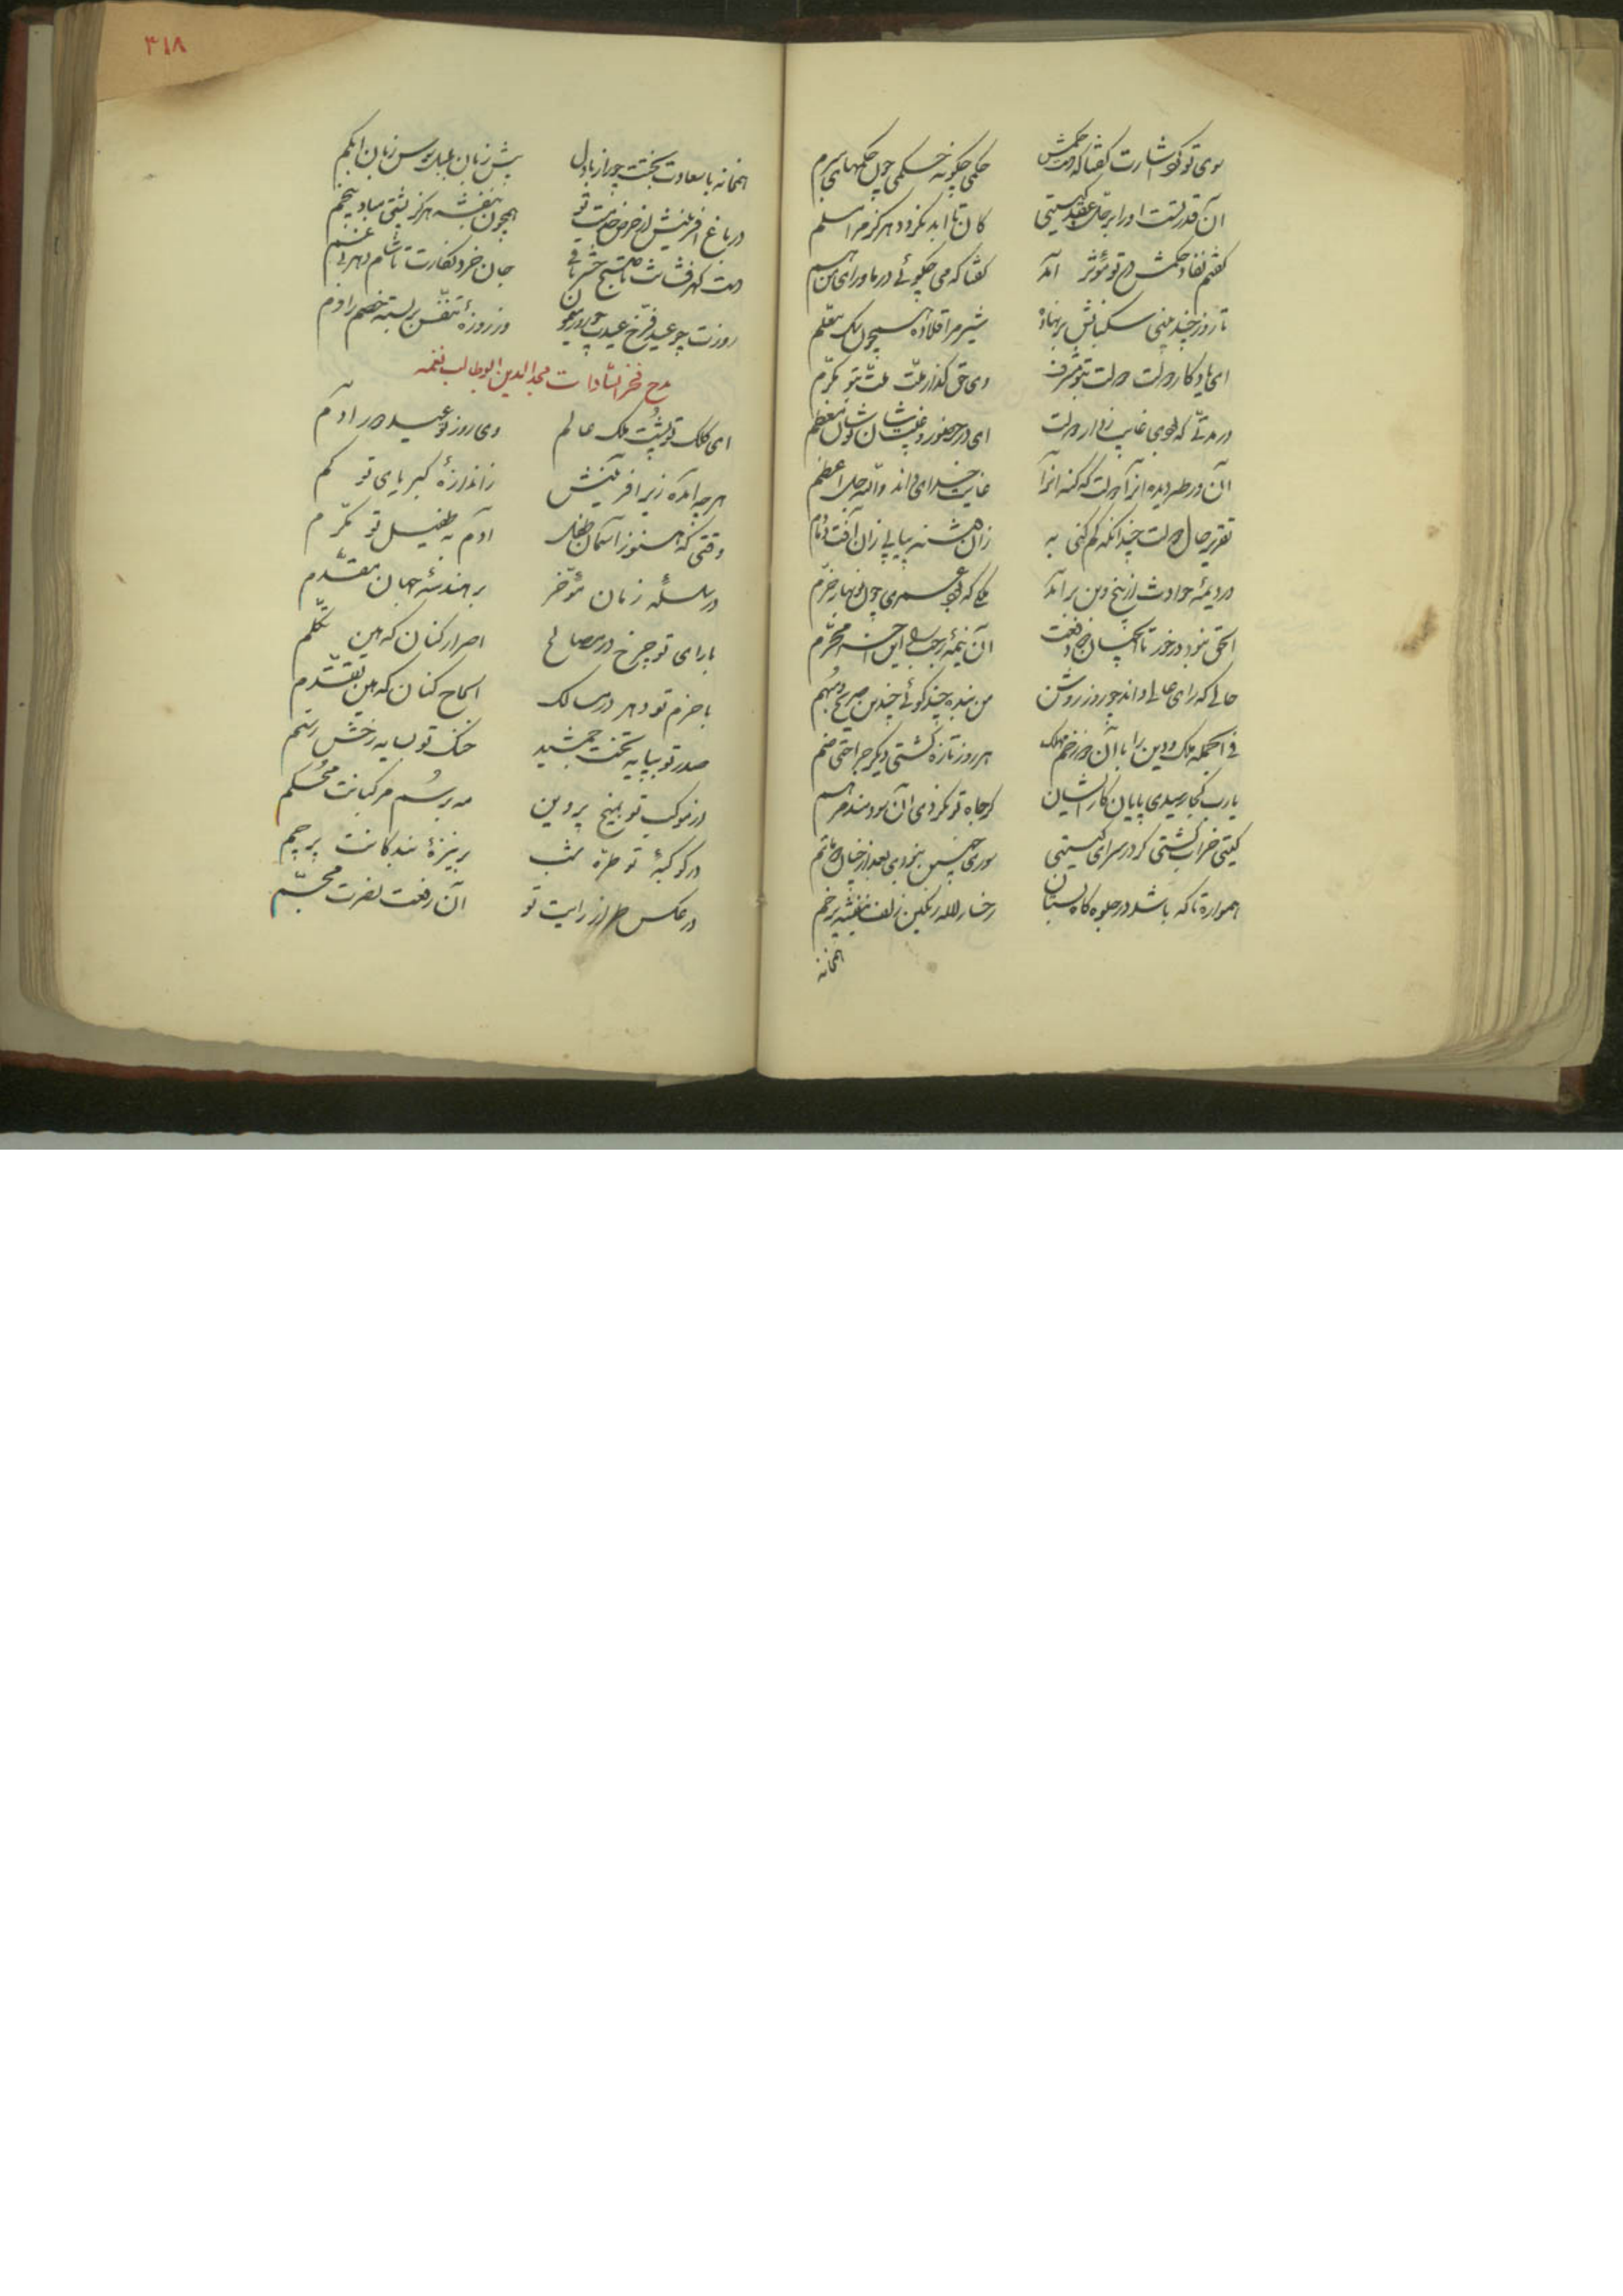 سوی تو کرد اشارت گفتا که دست حکمش    حکمی چگونه حکمی چون حکمهای مبرم
آن قدرتست او را بر حل و عقد گیتی    کان تا ابد نگردد هرگز مرا مسلم
گفتم نفاذ حکمش در تو مؤثر آمد    گفتا که می چگوئی در ماورای من هم
تا روز چند بینی سگبانش بر نهاده    شیر مرا قلاده همچون سگ معلم
ای یادگار دولت دولت بتو مشرف    وی حق گذار ملت ملت بتو مکرم
در مدتی که بودی غایب ز دار دولت    ای در حضور و غیبت شان تو شان معظم
آن دور طی دیده اند آن دولت که کنه آنرا    غایت خدای داند والله جل اعظم
تقریر حال دولت چندانکه کم کنی به    زان فتنه پیاپی زان آفت دمادم
در دیمهٔ حوادث از بیخ و بن بر آمد    ملکی که بود عمری چون نوبهار خرم
الحق نبود در خور تا آنچنان دو نعمت    آن نیمهٔ رجب این آخر محرم
حالی که رای عالی داند چو روز روشن    من بنده چند گوئی چندین صریح و مبهم
فی الجمله ملک و دین را با آن دو زخم مهلک    هر روز تازه گشتی دیگر جراحتی ضم
یارب کجا رسیدی پایان کار ایشان    گر جاه تو نکردی آن سودمند مرهم
گیتی خراب گشتی گر در سرای گیتی    سوری چنین نبودی بعد از چنان دو ماتم
همواره تا که باشد در جلوه‌گاه بستان    رخسار لاله رنگین زلف بنفشه پر خم
همخانه
۴۱۸
همخانه با سعادت بختت چو راز با دل    پیش زبان بلبل سوسن زبان ابکم
در باغ آفرینش از حرص خدمت تو    همچون بنفشه هرگز پشتی مباد بیخم
دست گهرفشانت تا صبح حشر باقی    جان خرد نگارت تا شام دهر بی غم
روزت چو عید فرخ عیدت چو روز میمون    وز روزهٔ تنفس بربسته خصم را دم
مدح فخر السادات مجد الدین ابو طالب نغمه
ای کلک تو پشت ملک عالم    وی روز تو عید دور آدم
هر چه آمده زیر آفرینش    ز اندازهٔ کبریای تو کم
وقتی که هنوز آسمان طفل    آدم به طفیل تو مکرم
در سلسلهٔ زمان مؤخر    بر هندسهٔ جهان مقدم
با رای تو چرخ در مصالح    اصرار کنان که هین تکلم
با حزم تو دهر در مسالک    الحاح کنان که هین تقدم
صدر تو بپایه تخت جمشید    خنگ تو بسایه رخش رستم
در موکب تو بمیخ پروین    مه بر سم مرکبانت محکم
در کوکبهٔ تو طرهٔ شب    بر نیزهٔ بندگانت پرچم
در عکس طراز رایت تو    آن رفعت نصرت مجسم